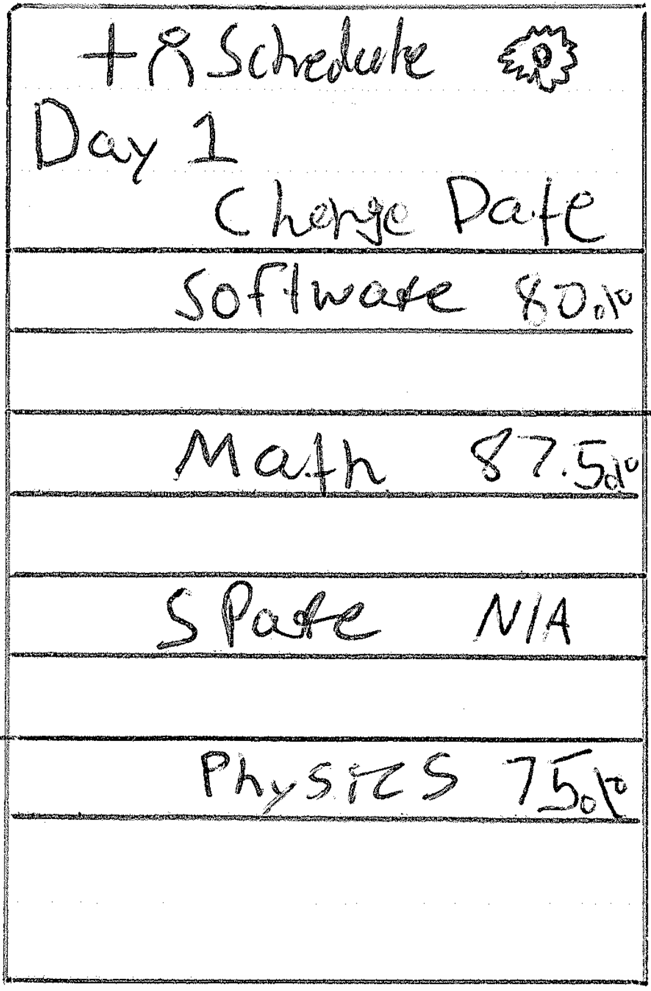 + Schedule
Day 1
Change Date
Software 80%
Math 87.5%
Spare N/A
Physics 75%